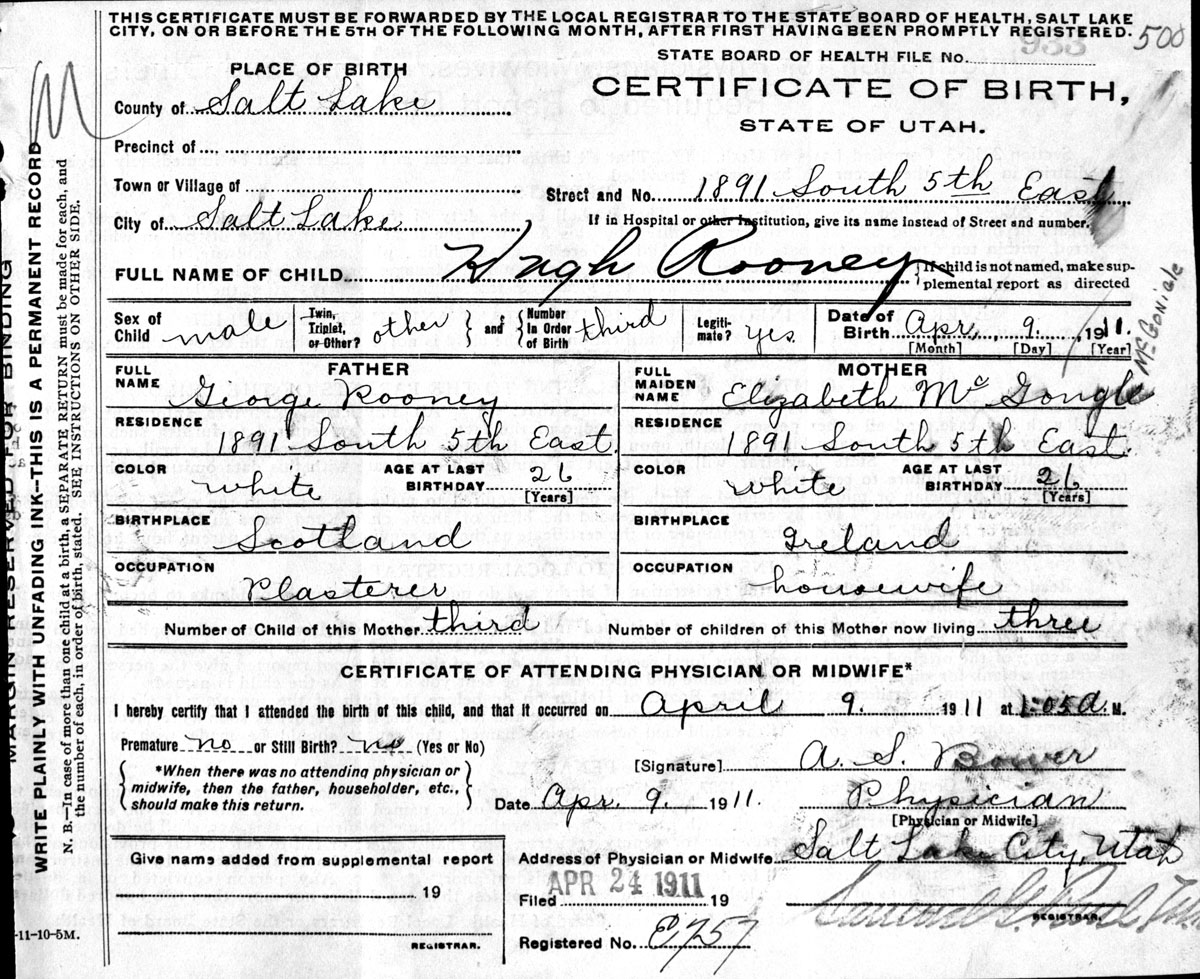 THIS CERTIFICATE MUST BE FORWARDED BY THE LOCAL REGISTRAR TO THE STATE BOARD OF HEALTH, SALT LAKE
CITY, ON OR BEFORE THE 5TH OF THE FOLLOWING MONTH, AFTER FIRST HAVING BEEN PROMPTLY REGISTERED.
500
STATE BOARD OF HEALTH FILE No.
933
PLACE OF BIRTH
CERTIFICATE OF BIRTH,
STATE OF UTAH.
County of Salt Lake
Precinct of
Town or Village of
Street and No. 1891 South 5th East
City of Salt Lake
If in Hospital or other Institution, give its name instead of Street and number.
FULL NAME OF CHILD Hugh Rooney
If child is not named, make sup-
plemental report as directed
Sex of Child male
Twin, Triplet, or Other? other
and
Number in Order of Birth third
Legiti-mate? yes.
Date of Birth Apr. 9. 1911.
[Month] [Day] [Year]
McGonigle
FATHER
FULL NAME George Rooney
RESIDENCE 1891 South 5th East.
COLOR white
AGE AT LAST BIRTHDAY 26
[Years]
BIRTHPLACE Scotland
OCCUPATION Plasterer
MOTHER
FULL MAIDEN NAME Elizabeth Mc Gongle
RESIDENCE 1891 South 5th East.
COLOR white
AGE AT LAST BIRTHDAY 26
[Years]
BIRTHPLACE Ireland
OCCUPATION housewife
Number of Child of this Mother third
Number of children of this Mother now living three
CERTIFICATE OF ATTENDING PHYSICIAN OR MIDWIFE*
I hereby certify that I attended the birth of this child, and that it occurred on April 9. 1911 at 1:05 A. M.
Premature no or Still Birth? no (Yes or No)
*When there was no attending physician or
midwife, then the father, householder, etc.,
should make this return.
[Signature] A. S. Bower
Date Apr. 9. 1911.
Physician
[Physician or Midwife]
Give name added from supplemental report
19
REGISTRAR.
Address of Physician or Midwife Salt Lake City, Utah
APR 24 1911
Filed 19
REGISTRAR.
Registered No. E 757
MARGIN RESERVED FOR BINDING
WRITE PLAINLY WITH UNFADING INK--THIS IS A PERMANENT RECORD
N. B.—In case of more than one child at a birth, a SEPARATE RETURN must be made for each, and
the number of each, in order of birth, stated. SEE INSTRUCTIONS ON OTHER SIDE.
-11-10-5M.